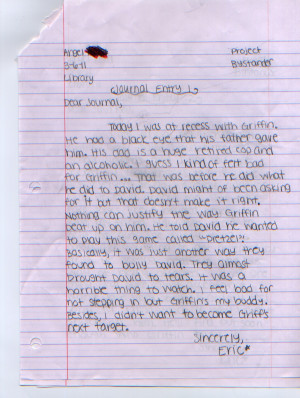 Angel Project
3-6-11 Bystander
Library
Journal Entry 1
Dear Journal,
Today I was at recess with Griffin.
He had a black eye that his father gave
him. His dad is a huge retired coo and
an alcoholic. I guess I kind of felt bad
for Griffin... That was before he did what
he did to David. David might of been asking
for it but that doesn't make it right.
Nothing can justify the way Griffin
beat up on him. He told David he wanted
to play this game called "Pretzel."
Basically, it was just another way they
found to bully David. They almost
brought David to tears. It was a
horrible thing to watch. I feel bad for
not stepping in but Griffin's my buddy.
Besides, I didn't want to become Griff's
next target.
Sincerely,
Eric*